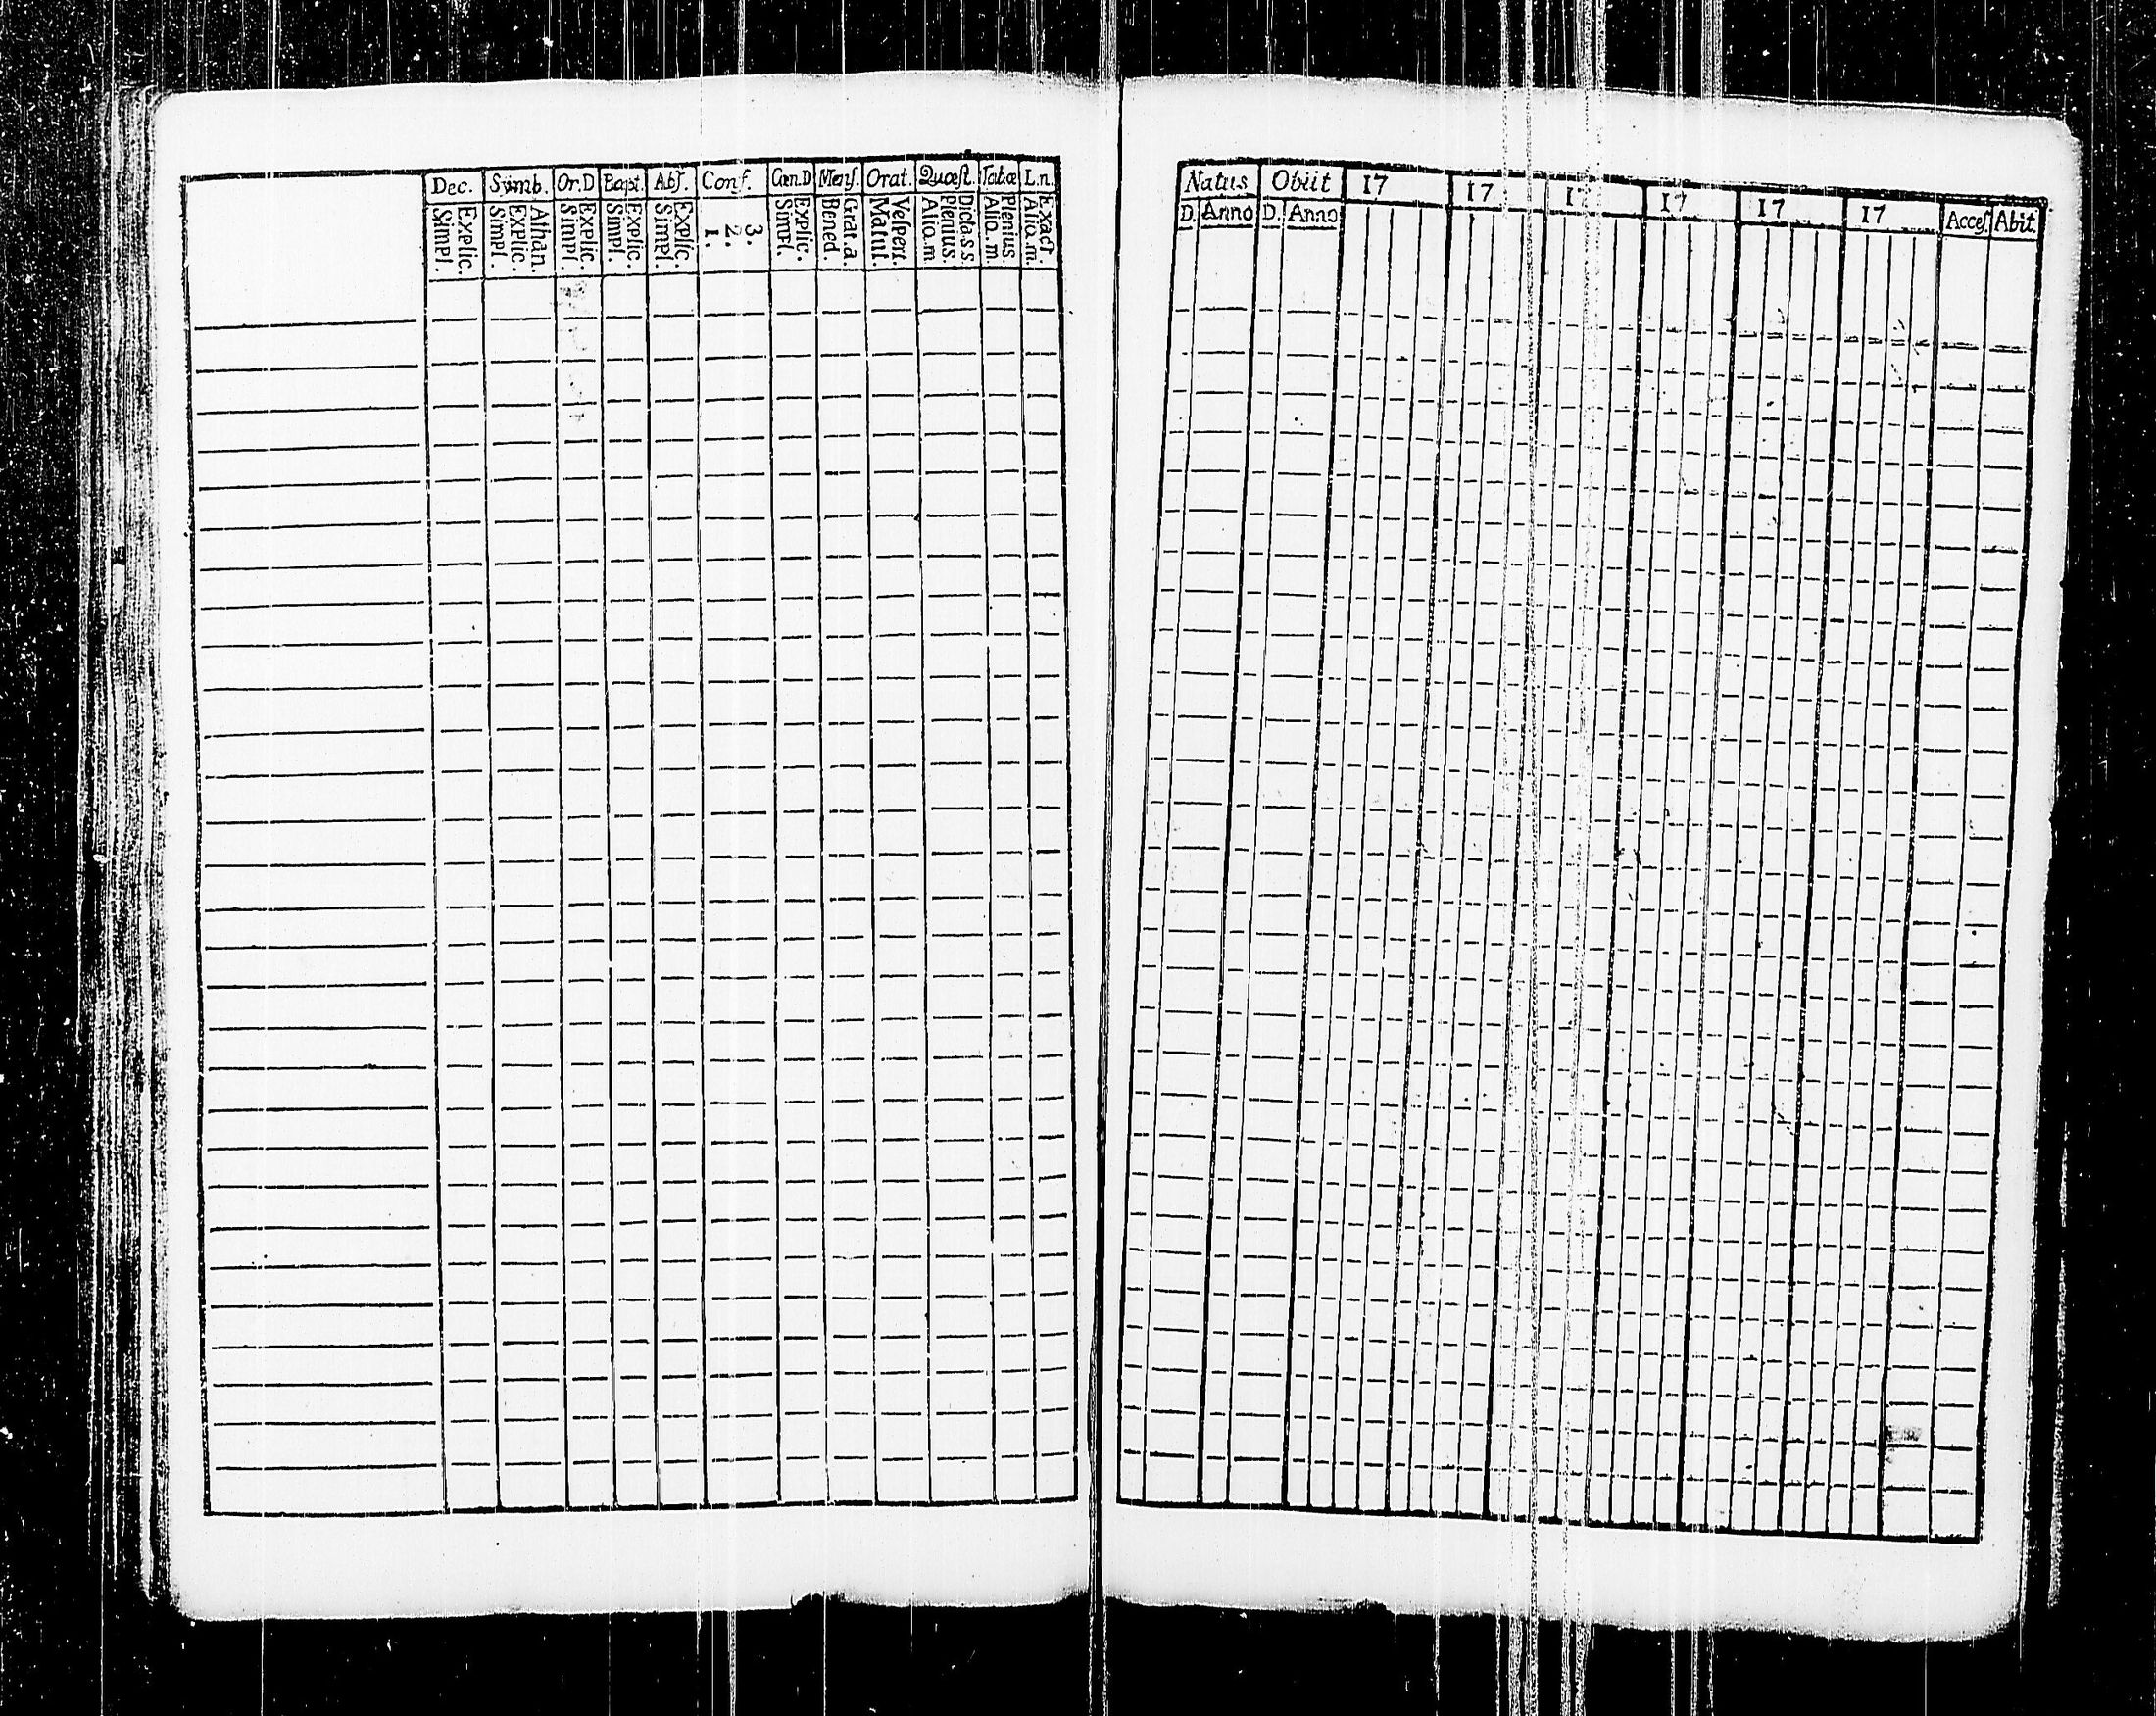 Dec. Symb. Or.D Bapt. Abſ. Conf. Cœn.D Menſ. Orat. Quæſt. Tabæ L.n.
Simpl. Explic. Simpl. Explic. Athan. Simpl. Explic. Simpl. Explic. Simpl. Explic. 1. 2. 3. Simpl. Explic. Bened. Grat.a. Matut. Veſpert. Aliq.m. Plenius. Dicta.s.s. Aliq.m. Plenius. Aliq.m. Exact.
Natus Obiit 17 17 17 17 17 17 Acceſ. Abit.
D. Anno D. Anno